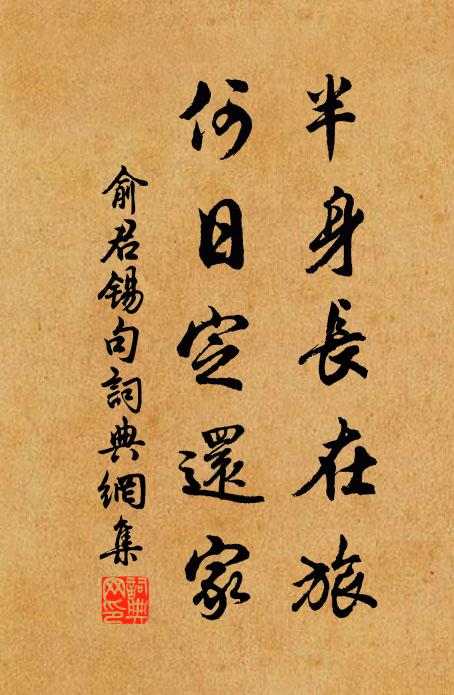 半身長在旅
何日定還家
俞君錫句詞典網集
詞典
网印